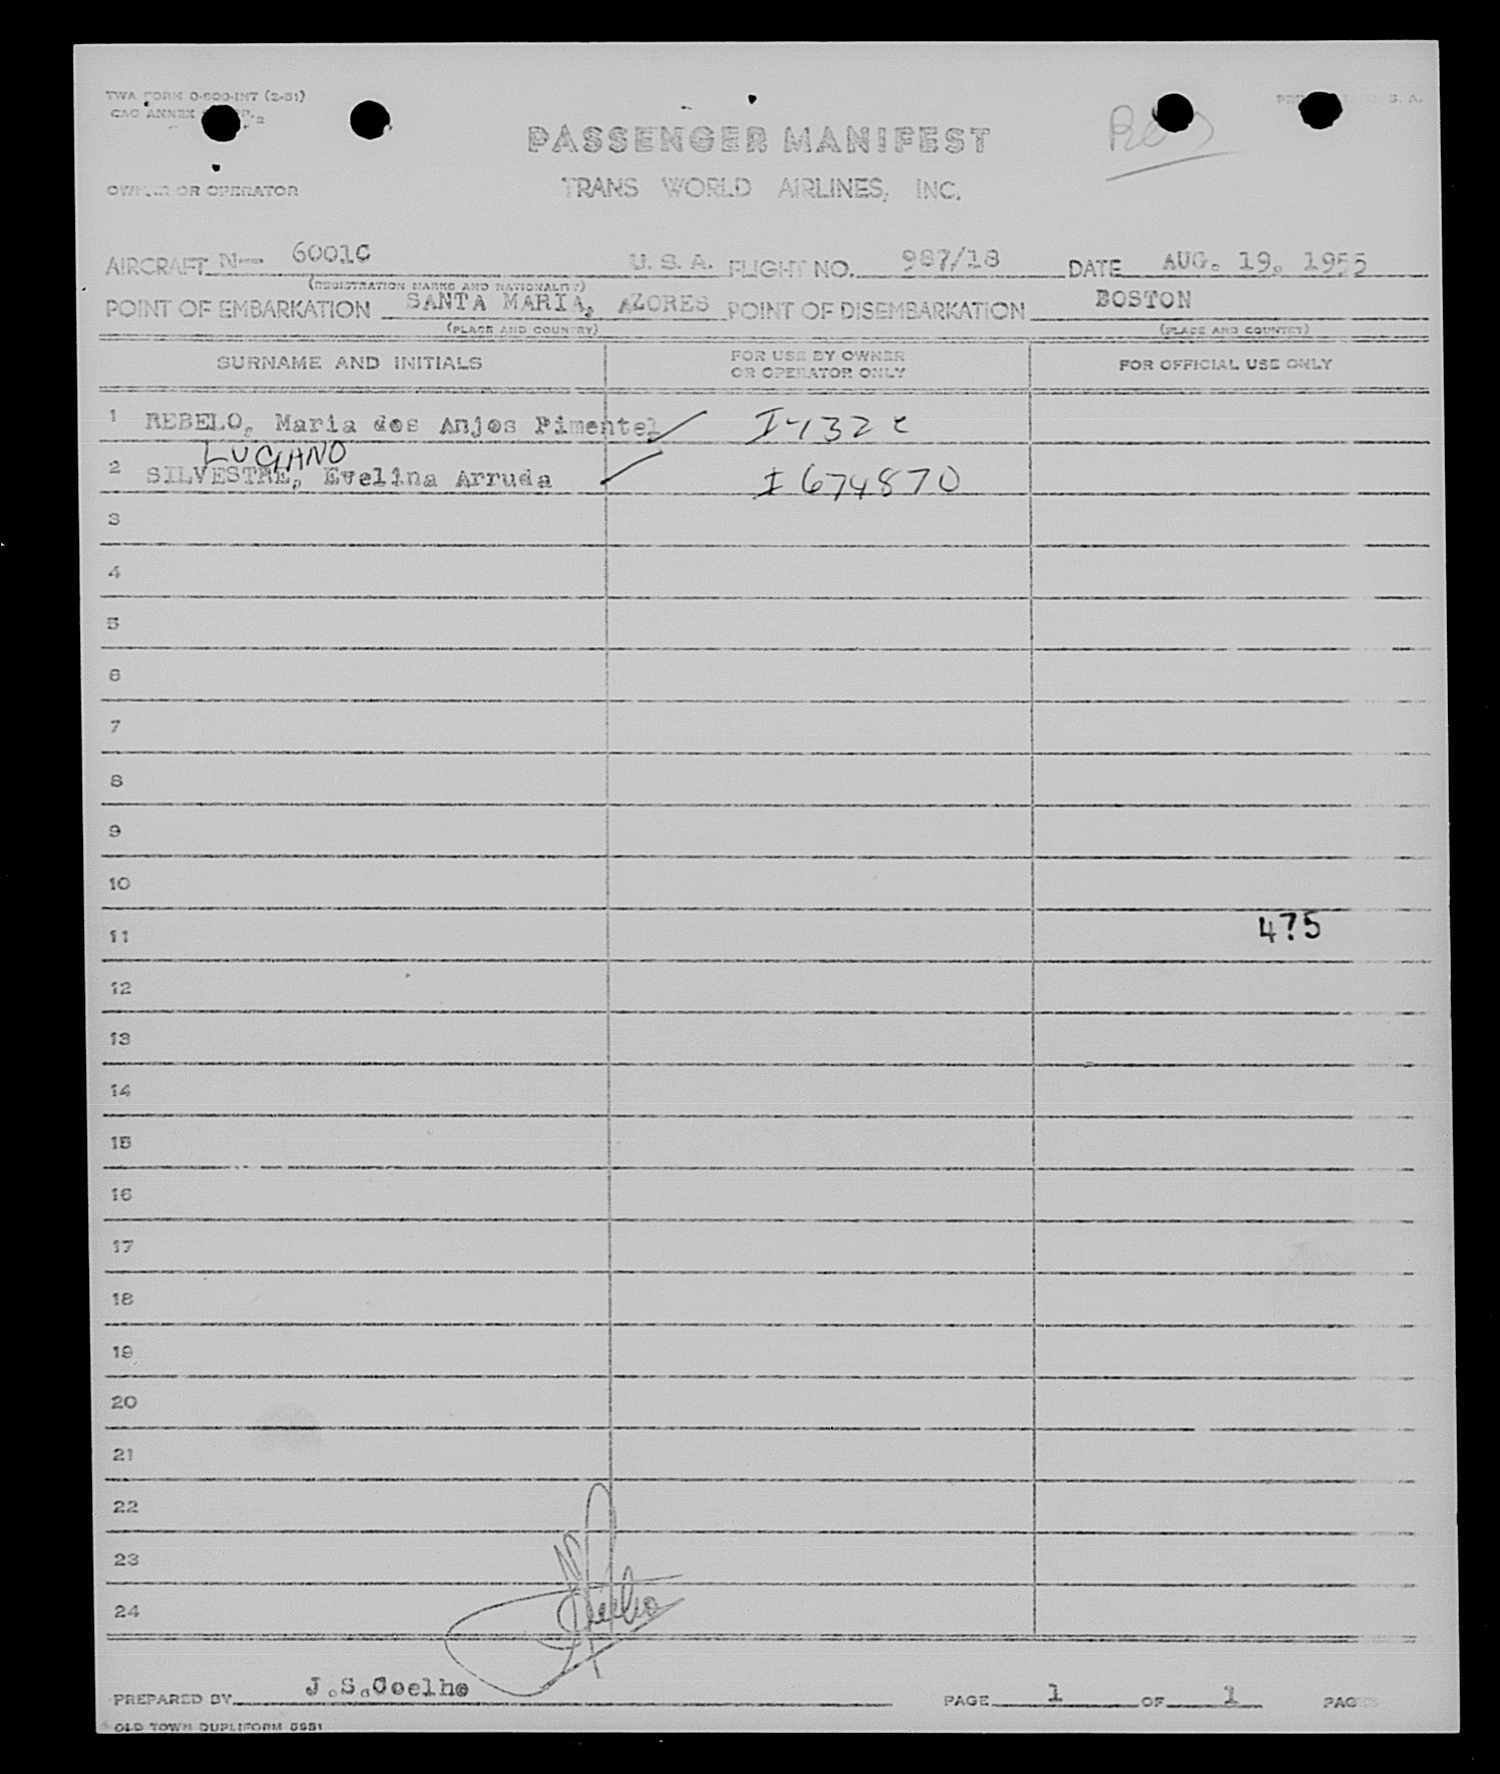 TWA FORM 0-600-INT (2-51)
CAO ANNEX
PASSENGER MANIFEST
OWNER OR OPERATOR TRANS WORLD AIRLINES, INC.
AIRCRAFT N-- 6001C U. S. A. FLIGHT NO. 987/18 DATE AUG. 19, 1955
(REGISTRATION MARKS AND NATIONALITY)
POINT OF EMBARKATION SANTA MARIA, AZORES POINT OF DISEMBARKATION BOSTON
(PLACE AND COUNTRY) (PLACE AND COUNTRY)
SURNAME AND INITIALS FOR USE BY OWNER OR OPERATOR ONLY FOR OFFICIAL USE ONLY
1 REBELO, Maria dos Anjos Pimentel ✓
LUCIANO
2 SILVESTRE, Evelina Arruda ✓ I 674870
3
4
5
6
7
8
9
10
11 475
12
13
14
15
16
17
18
19
20
21
22
23
24
PREPARED BY J.S.Coelho PAGE 1 OF 1 PAGES
OLD TOWN DUPLIFORM 5951